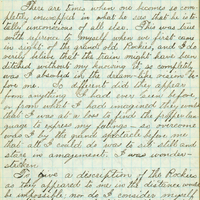 There are times when one becomes so com-
pletely enwrapped in what he sees that he is to-
tally unconscious of all else. This was so
with reference to myself when we first came
in sight of the grand old Rockies, and I do
verily believe that the train might have been
ditched without my knowing it, so completely
was I absorbed in the dream-like vision be-
fore me. So different did they appear
from anything I had ever seen before,
or from what I had imagined they would
that I was at a loss to find the proper lan-
guage to express my feelings, so overcome
was I by the grand spectacle before me
that all I could do was to sit still and
stare in amazement; I was wonder-
stricken.
To give a description of the Rockies
as they appeared to me in the distance would
be impossible, nor do I consider myself